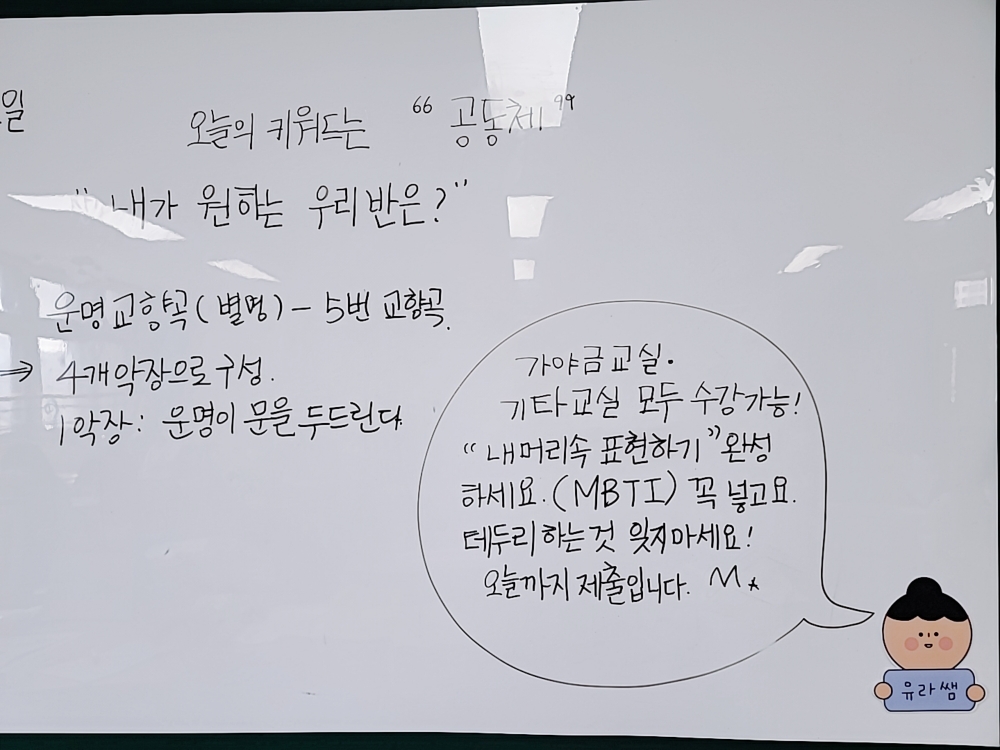 일
오늘의 키워드는 “공동체”
" 내가 원하는 우리반은?"
운명교향곡(별명) - 5번 교향곡.
⇒ 4개악장으로 구성.
1악장: 운명이 문을 두드린다.
가야금교실.
기타교실 모두 수강가능!
“내머리속 표현하기” 완성
하세요. (MBTI) 꼭 넣고요.
테두리하는것 잊지마세요!
오늘까지 제출입니다.
유라쌤